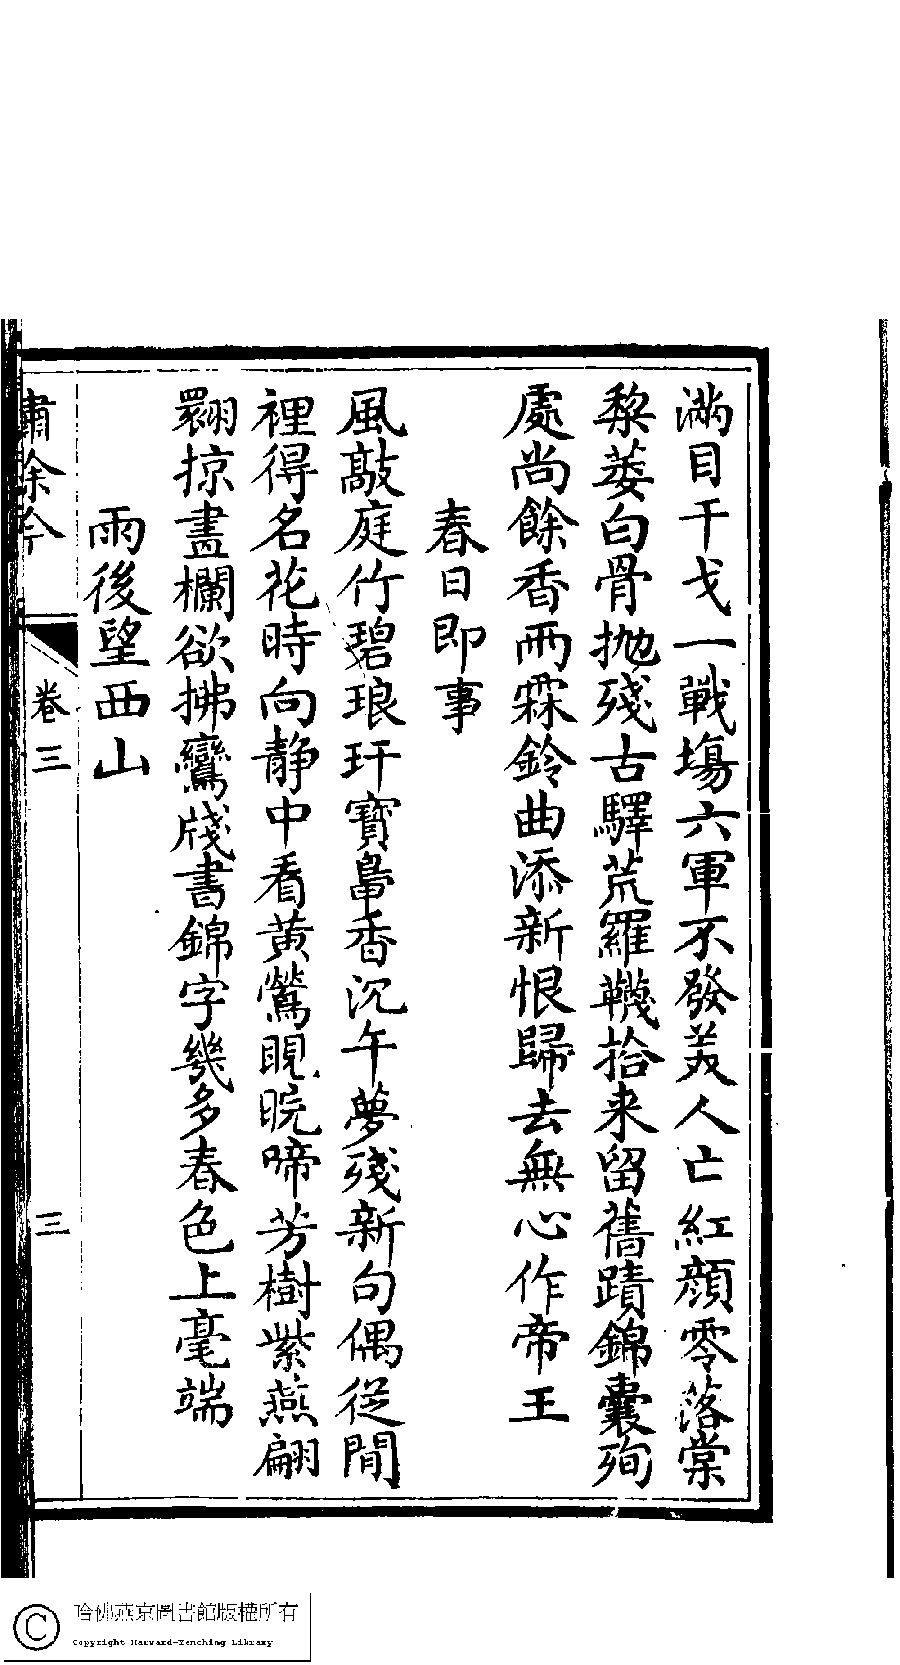 滿目干戈一戰塲六軍不發美人亡紅顔零落棠
黎萎白骨抛殘古驛荒羅韈拾来留舊蹟錦囊殉
處尚餘香雨霖鈴曲添新恨歸去無心作帝王
春日即事
風敲庭竹碧琅玕寳鼎香沉午夢殘新句偶從閒
裡得名花時向靜中看黄鶯睍睆啼芳樹紫燕翩
翾掠畫欄欲拂鸞牋書錦字幾多春色上毫端
雨後望西山
卷三
三
哈佛燕京圖書館版權所有
Copyright Harvard-Yenching Library